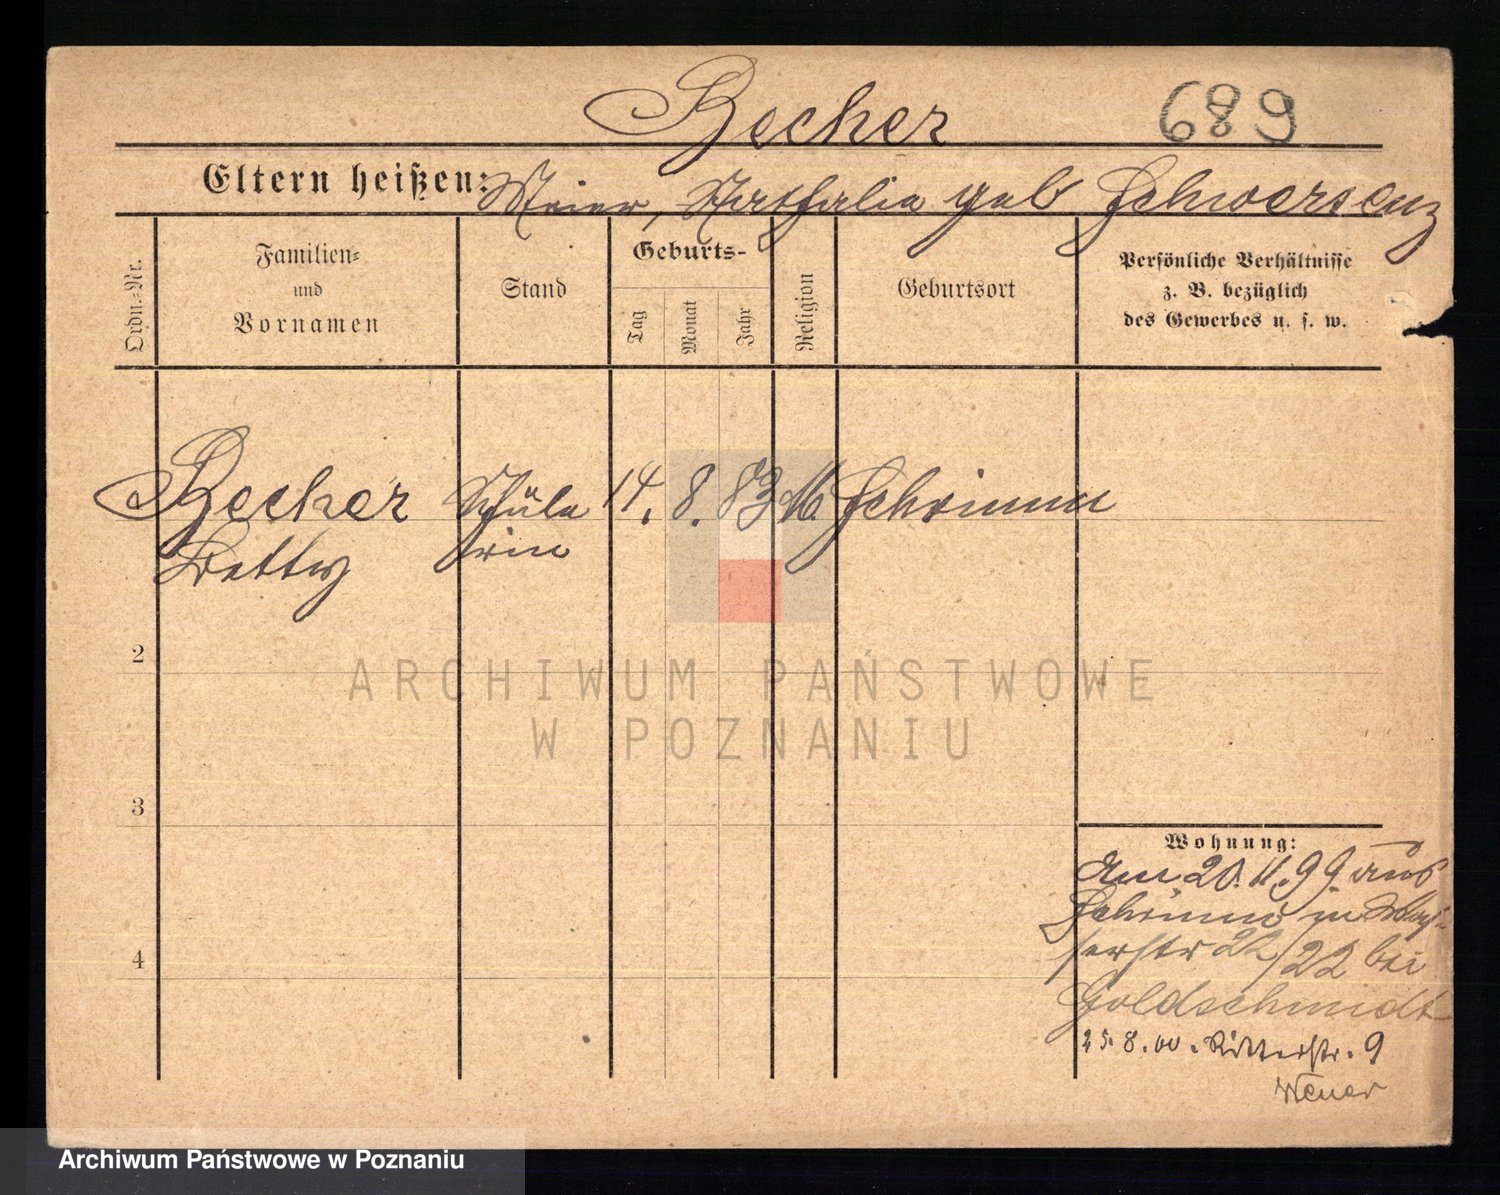 Becher 689
Eltern heißen: Meier, Nathalia geb Schwersenz
Ordn.-Nr.
Familien-
und
Vornamen
Stand
Geburts-
Tag
Monat
Jahr
Religion
Geburtsort
Persönliche Verhältnisse
z. B. bezüglich
des Gewerbes u. s. w.
Becher Schüle 14. 8. 83 M. Schrimm
Betty rin
2
3
4
Wohnung:
Am 20.11.99. aus
Schrimm in
22 bei
Goldschmidt
25.8.00. Ritterstr. 9
ARCHIWUM PAŃSTWOWE
W POZNANIU
Archiwum Państwowe w Poznaniu